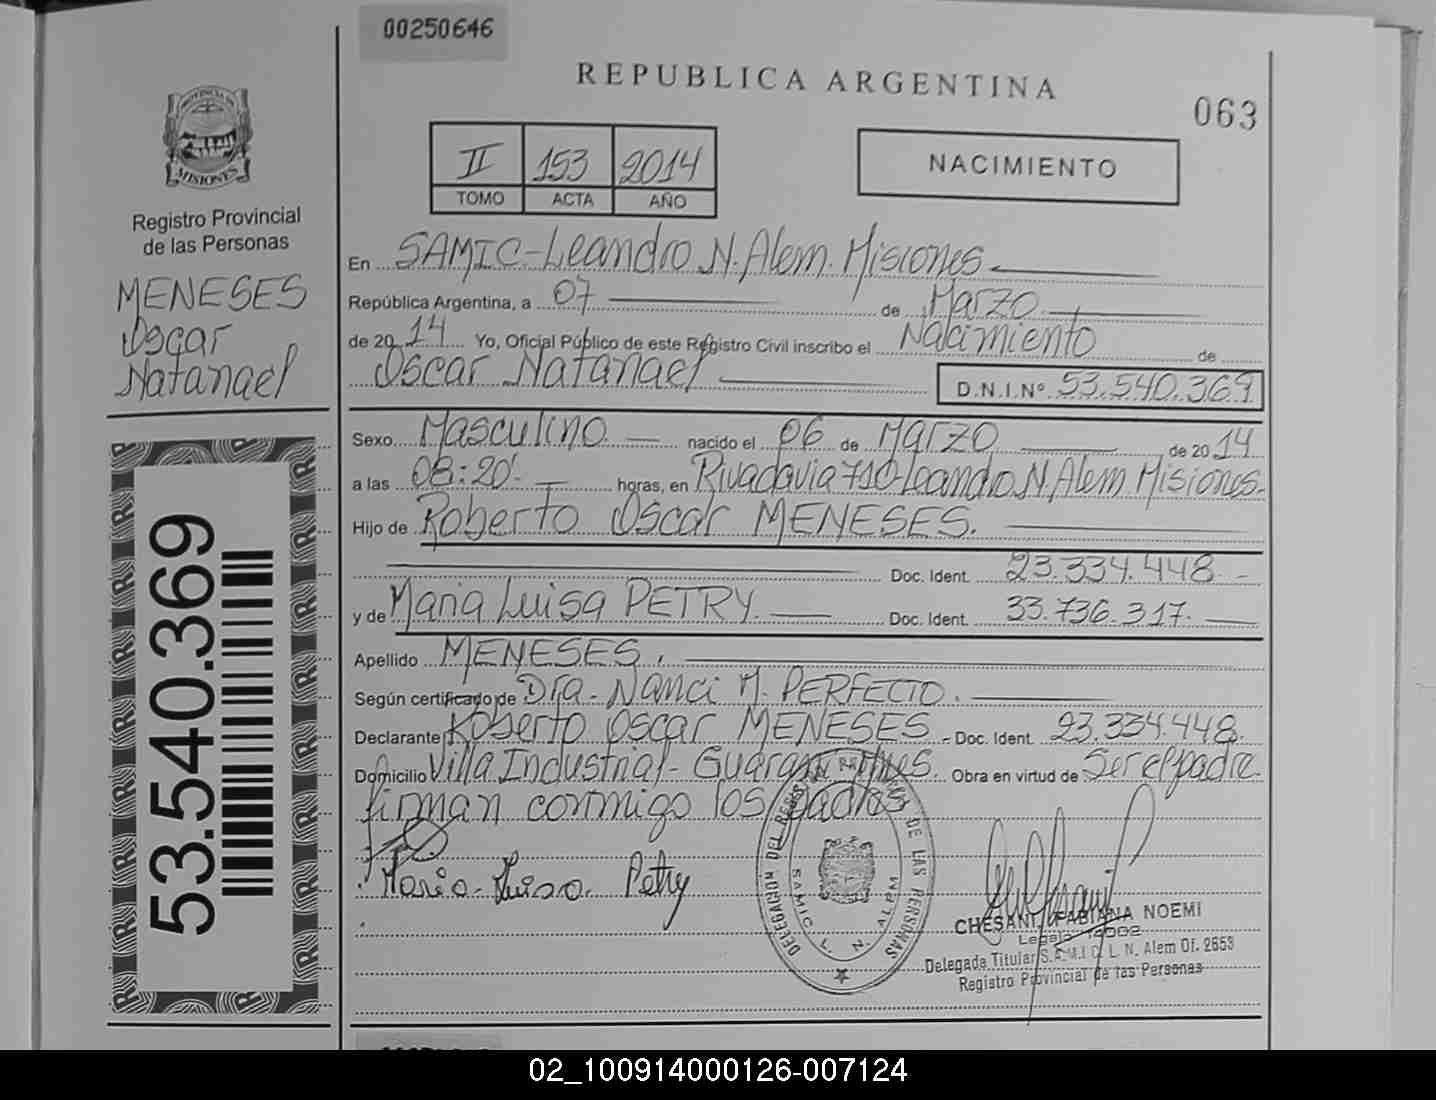 00250646
REPUBLICA ARGENTINA
063
PROVINCIA DE
MISIONES
Registro Provincial
de las Personas
MENESES
Oscar
Natanael
53.540.369
II 153 2014
TOMO ACTA AÑO
NACIMIENTO
En SAMIC-Leandro N. Alem. Misiones
República Argentina, a 07 de Marzo
de 2014 Yo, Oficial Público de este Registro Civil inscribo el Nacimiento de
Oscar Natanael D.N.I.Nº 53.540.369
Sexo Masculino nacido el 06 de Marzo de 2014
a las 08:20' horas, en Rivadavia 710-Leandro N. Alem Misiones-
Hijo de Roberto Oscar MENESES.
Doc. Ident. 23.334.448 -
y de Maria Luisa PETRY. Doc. Ident. 33.736.317.
Apellido MENESES.
Según certificado de Dra. Nanci M. PERFECTO.
Declarante Roberto Oscar MENESES - Doc. Ident. 23.334.448.
Domicilio Villa Industrial- Guarani Mnes. Obra en virtud de Ser el padre.
firman conmigo los padres
Maria Luisa Petry
DELEGACION DEL REGISTRO PROVINCIAL DE LAS PERSONAS
SAMIC L. N. ALEM
CHESANI, FABIANA NOEMI
Delegada Titular S.A.M.I.C. L. N. Alem Of. 2653
Registro Provincial de las Personas
02_100914000126-007124